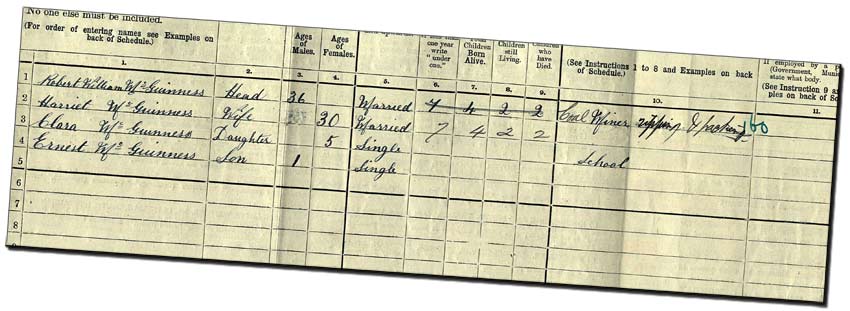 No one else must be included.
(For order of entering names see Examples on back of Schedule.)
Ages of Males.
Ages of Females.
one year write "under one."
Children Born Alive.
Children still Living.
who have Died.
(See Instructions 1 to 8 and Examples on back of Schedule.)
If employed by a
(Government,
state what body.
(See Instruction 9
ples on back of
1. 2. 3. 4. 5. 6. 7. 8. 9. 10. 11.
1 Robert William Mc Guinness Head 36 Married 7 4 2 2 Coal Miner ripping & packing 60
2 Harriet Mc Guinness Wife 30 Married 7 4 2 2
3 Clara Mc Guinness Daughter 5 Single School
4 Ernest Mc Guinness Son 1 Single
5
6
7
8